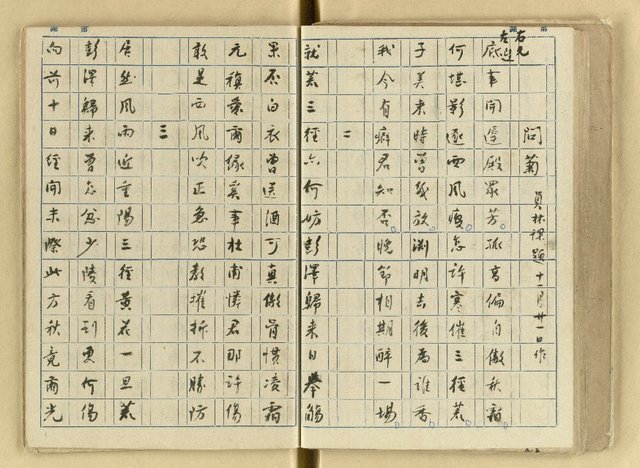 右元
左
問菊 員林課題十一月廿一日作
底事開遲殿眾芳孤高偏自傲秋霜
何堪影逐西風瘦怎許寒催三徑荒
子美來時曾幾放淵明去後為誰香
我今有癖君知否晚節相期醉一場
二
就荒三徑亦何妨彭澤歸來日舉觴
果否白衣曾送酒可真傲骨慣凌霜
元稹棄爾緣奚事杜甫憐君那許傷
敢是西風吹正急恐教摧折不勝防
三
居然風雨近重陽三徑黃花一旦荒
彭澤歸來曾怎少陵看到更何傷
向前十日經開未際此方秋竟爾光